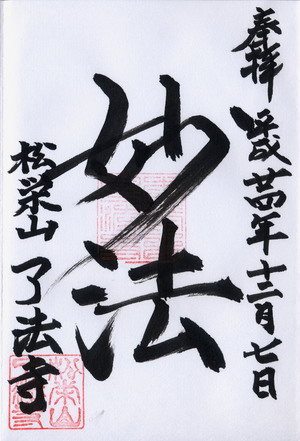 奉拝
平成廿四年十二月七日
妙法
松栄山
了法寺